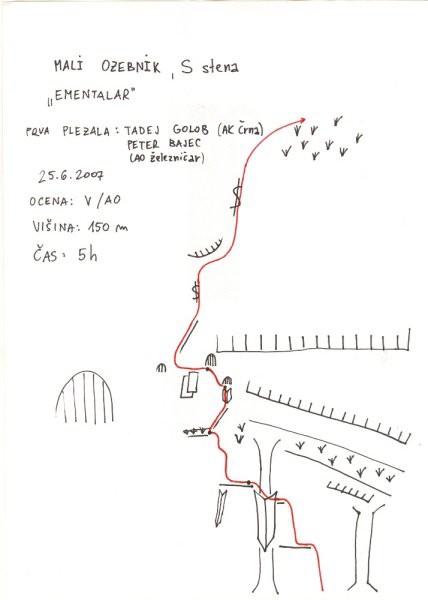 MALI OZEBNIK, S stena
„EMENTALAR"
PRVA PLEZALA: TADEJ GOLOB (AK Črna)
PETER BAJEC
(AO železničar)
25.6.2007
OCENA: V/AO
VIŠINA: 150 m
ČAS: 5h